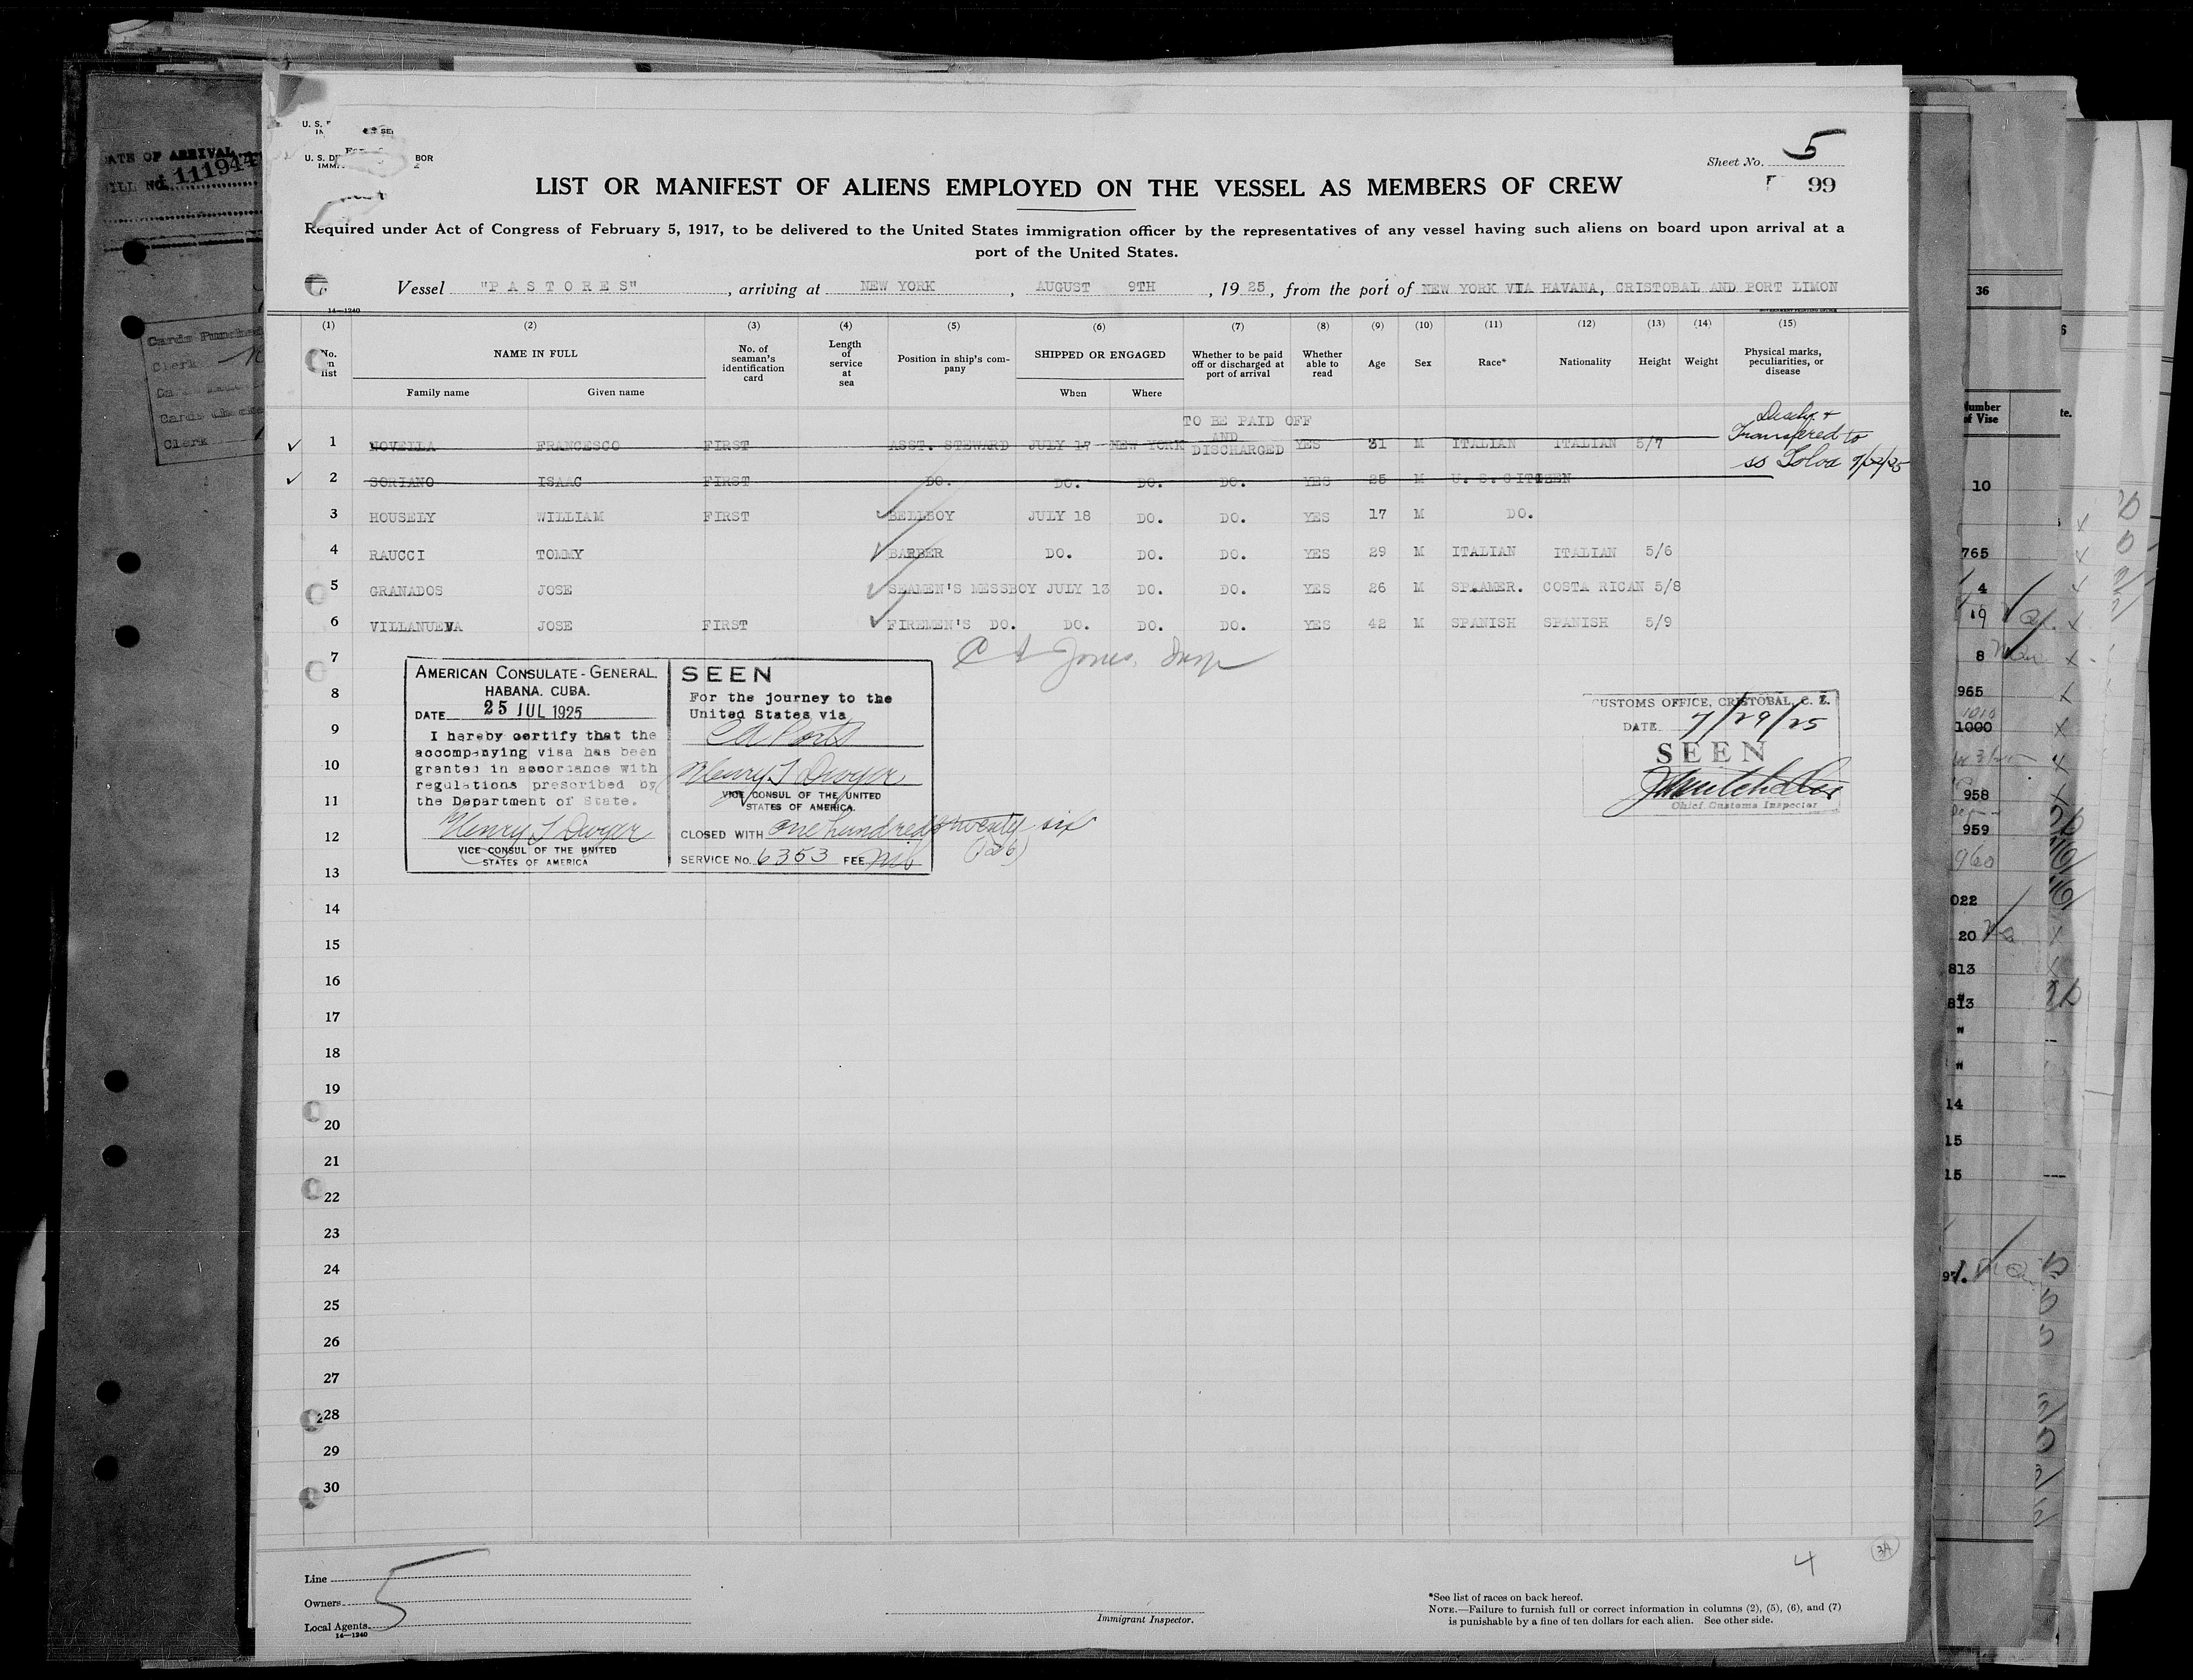 U. S. DE BOR
Sheet No. 5
99
LIST OR MANIFEST OF ALIENS EMPLOYED ON THE VESSEL AS MEMBERS OF CREW
Required under Act of Congress of February 5, 1917, to be delivered to the United States immigration officer by the representatives of any vessel having such aliens on board upon arrival at a
port of the United States.
Vessel "P A S T O R E S", arriving at NEW YORK, AUGUST 9TH, 1925, from the port of NEW YORK VIA HAVANA, CRISTOBAL AND PORT LIMON
14—1240
(1) (2) (3) (4) (5) (6) (7) (8) (9) (10) (11) (12) (13) (14) (15)
No. in list NAME IN FULL No. of seaman's identification card Length of service at sea Position in ship's company SHIPPED OR ENGAGED Whether to be paid off or discharged at port of arrival Whether able to read Age Sex Race* Nationality Height Weight Physical marks, peculiarities, or disease
Family name Given name When Where
TO BE PAID OFF
AND
1 NOVELLA FRANCESCO FIRST ASST. STEWARD JULY 17 NEW YORK DISCHARGED YES 31 M ITALIAN ITALIAN 5/7
Transfered to
2 SORIANO ISAAC FIRST DO. DO. DO. DO. YES 25 M U. S. CITIZEN
3 HOUSELY WILLIAM FIRST BELLBOY JULY 18 DO. DO. YES 17 M DO.
4 RAUCCI TOMMY BARBER DO. DO. DO. YES 29 M ITALIAN ITALIAN 5/6
5 GRANADOS JOSE SEAMEN'S MESSBOY JULY 13 DO. DO. YES 26 M SP.AMER. COSTA RICAN 5/8
6 VILLANUEVA JOSE FIRST FIREMEN'S DO. DO. DO. DO. YES 42 M SPANISH SPANISH 5/9
Jones, Insp
7
8
9
10
11
12
13
14
15
16
17
18
19
20
21
22
23
24
25
26
27
28
29
30
AMERICAN CONSULATE-GENERAL.
HABANA. CUBA.
DATE 25 JUL 1925
I hereby certify that the
accompanying visa has been
granted in accordance with
regulations prescribed by
the Department of State.
Henry T Dwyer
VICE CONSUL OF THE UNITED
STATES OF AMERICA
SEEN
For the journey to the
United States via
CA Ports
Henry T Dwyer
VICE CONSUL OF THE UNITED
STATES OF AMERICA.
CLOSED WITH one hundred twenty six
(126)
SERVICE No. 6353 FEE nil
CUSTOMS OFFICE, CRISTOBAL, C. Z.
DATE 7/29/25
SEEN
Chief Customs Inspector
4
3A
Line
Owners
Local Agents
14—1240
5
Immigrant Inspector.
*See list of races on back hereof.
NOTE.—Failure to furnish full or correct information in columns (2), (5), (6), and (7)
is punishable by a fine of ten dollars for each alien. See other side.
DATE OF ARRIVAL
111944
Cards Punched
Clerk
Clerk
36
Number
of Vise
10
765
4
19
8
965
1000
958
959
960
022
20
813
813
14
15
15